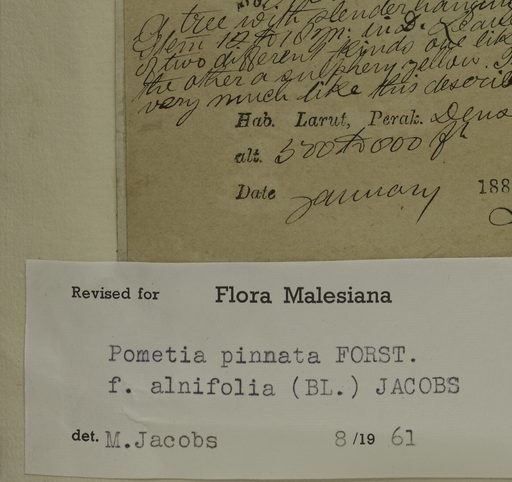 A tree with slender hanging
Stem 12 to 18 m. in D. Leaves
of two different kinds one like
the other a sulphery yellow.
very much like this describe
Hab. Larut, Perak. Dens
alt. 500 to 800 ft
Date January 188
Revised for Flora Malesiana
Pometia pinnata FORST.
f. alnifolia (BL.) JACOBS
det. M.Jacobs 8/19 61